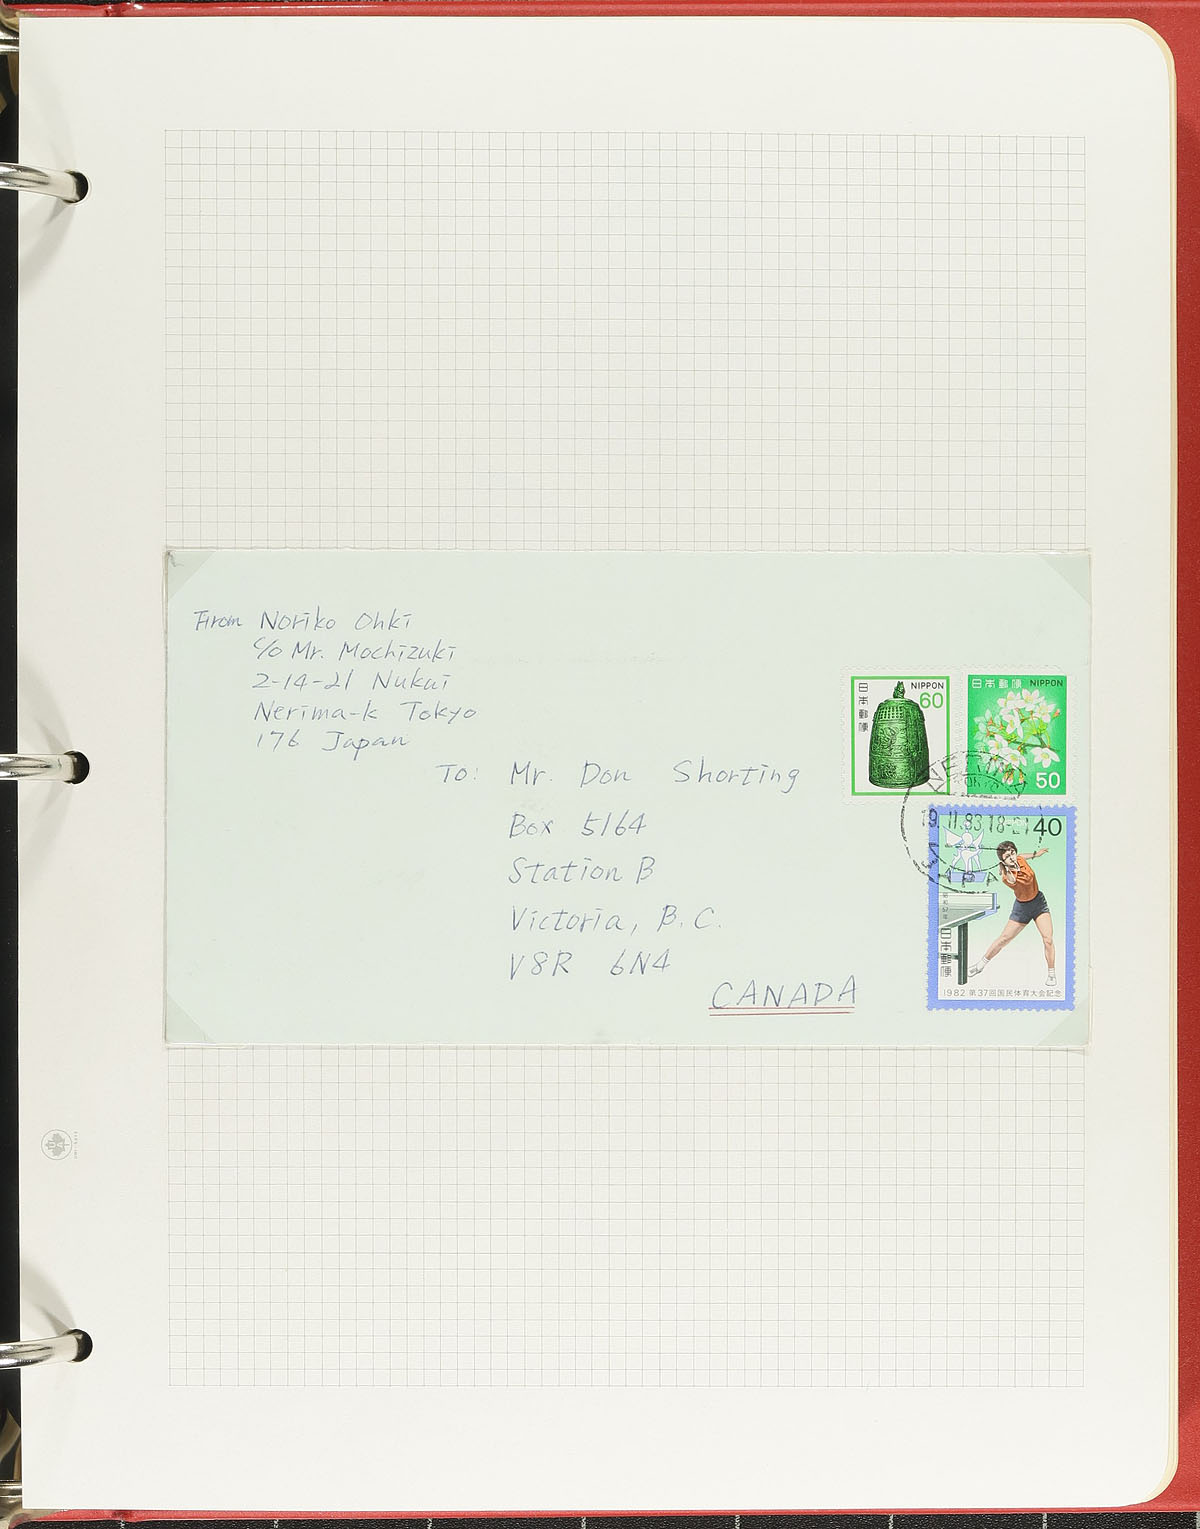 From Noriko Ohki
c/o Mr. Mochizuki
2-14-21 Nukui
Nerima-k Tokyo
176 Japan
To: Mr. Don Shorting
Box 5164
Station B
Victoria, B.C.
V8R 6N4
CANADA
日本郵便
NIPPON
60
日本郵便 NIPPON
50
NERIMA
19.11.83.18-21
JAPAN
40
日本郵便
1982 第37回国民体育大会記念